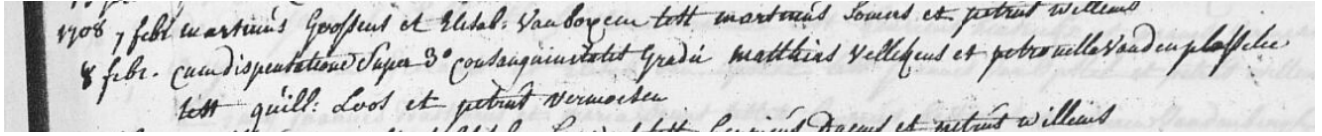 1708 7 febr martinus Goossens et Elisab: Van boxem test martinus Somers et petrus willems
8 febr. cum dispensatione Super 3° consanguinitatis Gradu matthias Vellekens et petronella Vanden plassche
test guill: Loos et petrus vermoesen
et petrus willems